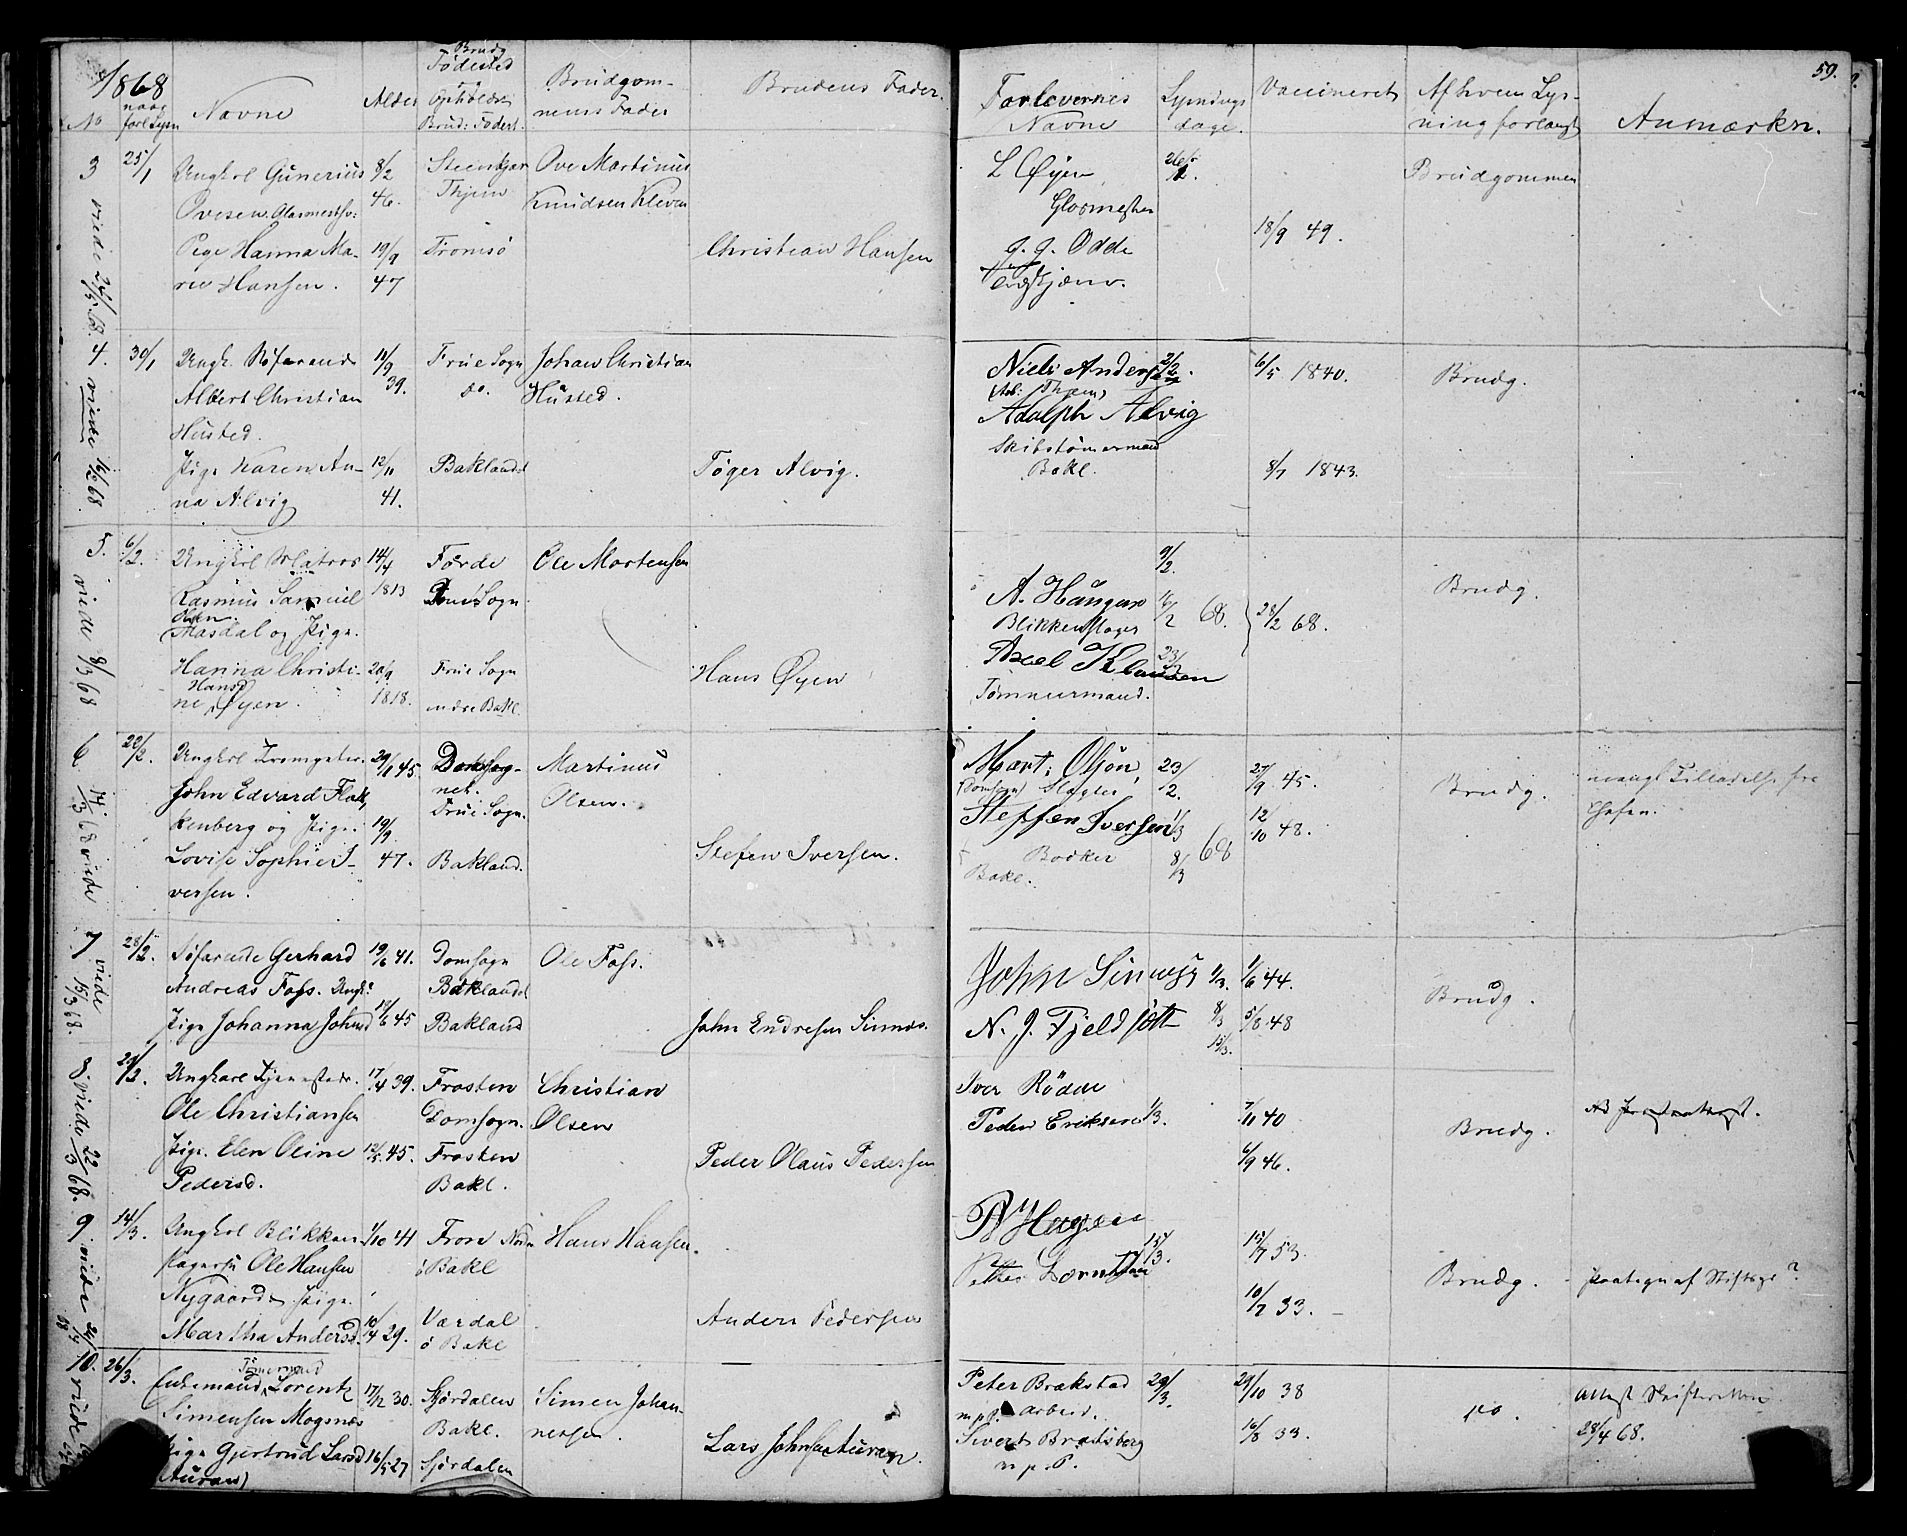 1868
59.
No
naar forl. Lysn
Navne
Alder
Brudg Fødested
Opholds
Brud: Fødest.
Brudgom-
mens Fader
Brudens Fader.
Forlovernes
Navne
Lysnings
dage.
Vaccineret
Af hvem Lys-
ning forlangt
Anmærkn.
3 25/1 Ungkrl Gunerius 8/2 Steenkjær Ove Martinus L Øyen 26/1. Brudgommen
Ovesen Glasmestsv: 46. Thjem Knudsen Kleven Glasmester
18/9 49.
Pige Hanna Ma- 19/9 Tromsö Christian Hansen J. J. Odde
rie Hansen. 47
viede
4. 30/1 Ungk. Söfarende 11/9 Frue Sogn Johan Christian Niels Andersen 2/2. 6/5 1840. Brudg.
Albert Christian 39. do. Husted. Adolph Alvig
Husted. Skibstömermand
Pige Karen An- 12/11 Baklandet Töger Alvig. Bakl. 8/7 1843.
na Alvig 41.
viede 16/2 68
5. 6/2. Ungkrl Matros 14/4 Förde Ole Mortensen 9/2.
Rasmus Samuel 1813 Dom Sogn A. Haugan 16/2 68. 28/2 68. Brudg.
Olsen Blikkenslager
Masdal og Pige. Axel Klausen 23/2
Hanna Christi- 20/9 Frue Sogn Hans Øyen Tömmermand.
Hansd
ne Øyen. 1818. nedre Bakl.
viede 8/3 68
6 22/2. Ungkrl 29/1 45. Domsog- Martinus Mart: Olsön, 23/2. 27/9 45. Brudg.
John Edvard Flak, net. Olsen. (Domsogn) Slagter
kenberg og Pige. 19/9 Frue Sogn. Steffen Iversen 1/3 68 12/10 48.
Lovise Sophie I- 47. Bakland. Stefen Iversen. Bödker 8/3
versen. Bakl.
14/3 68 viede
7 28/2. Söfarende Gerhard 19/6 41. Domsogn Ole Foss. John Simnes 1/3. 1/6 44.
Andreas Foss. Ungk: Baklandet Brudg.
Pige Johanna Johnsd 19/6 45 Bakland John Endresen Simnes. N. J. Fjeldsött 8/3 5/8 48
15/3.
viede 15/3 68.
8 Ungkarl Tjenestedr. 17/4 39. Frosten Christian Iver Rödde
Ole Christiansen Domsogn. Olsen Peder Eriksen 1/3. 7/11 40 Brudg.
Pige. Elen Oline 12/5. 45. Frosten Peder Olaus Pedersen 6/9 46.
Pedersd. Bakl.
viede 22/3 68.
9 14/3. Ungkrl Blikken- 1/10 44 Fron Hans Hansen. P Hagen 15/3. 15/7 53.
slagersv Ole Hansen ö Bakl Petter Brudg. paategn af Stiftsge?
Nygaard Pige. 10/7 33.
Martha Andersd. 10/4 29. Værdal Anders Pedersen
ö Bakl
viede
10. 26/3. Tömermand
Enkemand, Lorentz 17/12 30. Stjördalen Simen Johan- Peter Brækstad 29/3. 29/10 38 do. Attest Skifteretten
Simensen Mogsnes Bakl. nessen. m.p.P. arbeid. 28/4 68.
Pige Gjertrud Larsd 16/5 27 Stjördalen Lars Johnsen Auran. Sivert Bratsberg 16/8 33.
Auran) m.p.P.
viede